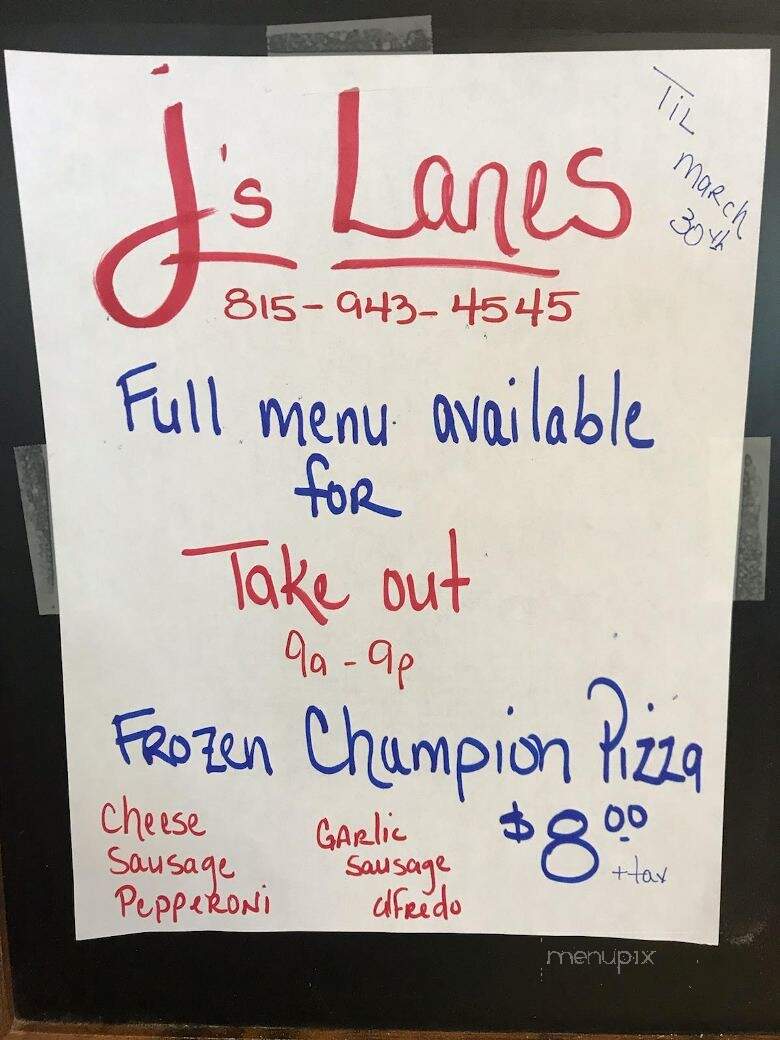 J's Lanes
Til
March
30th
815-943-4545
Full menu available
for
Take out
9a - 9p
Frozen Champion Pizza
Cheese
Sausage
Pepperoni
Garlic
Sausage
Alfredo
$8.00
+tax
menupix